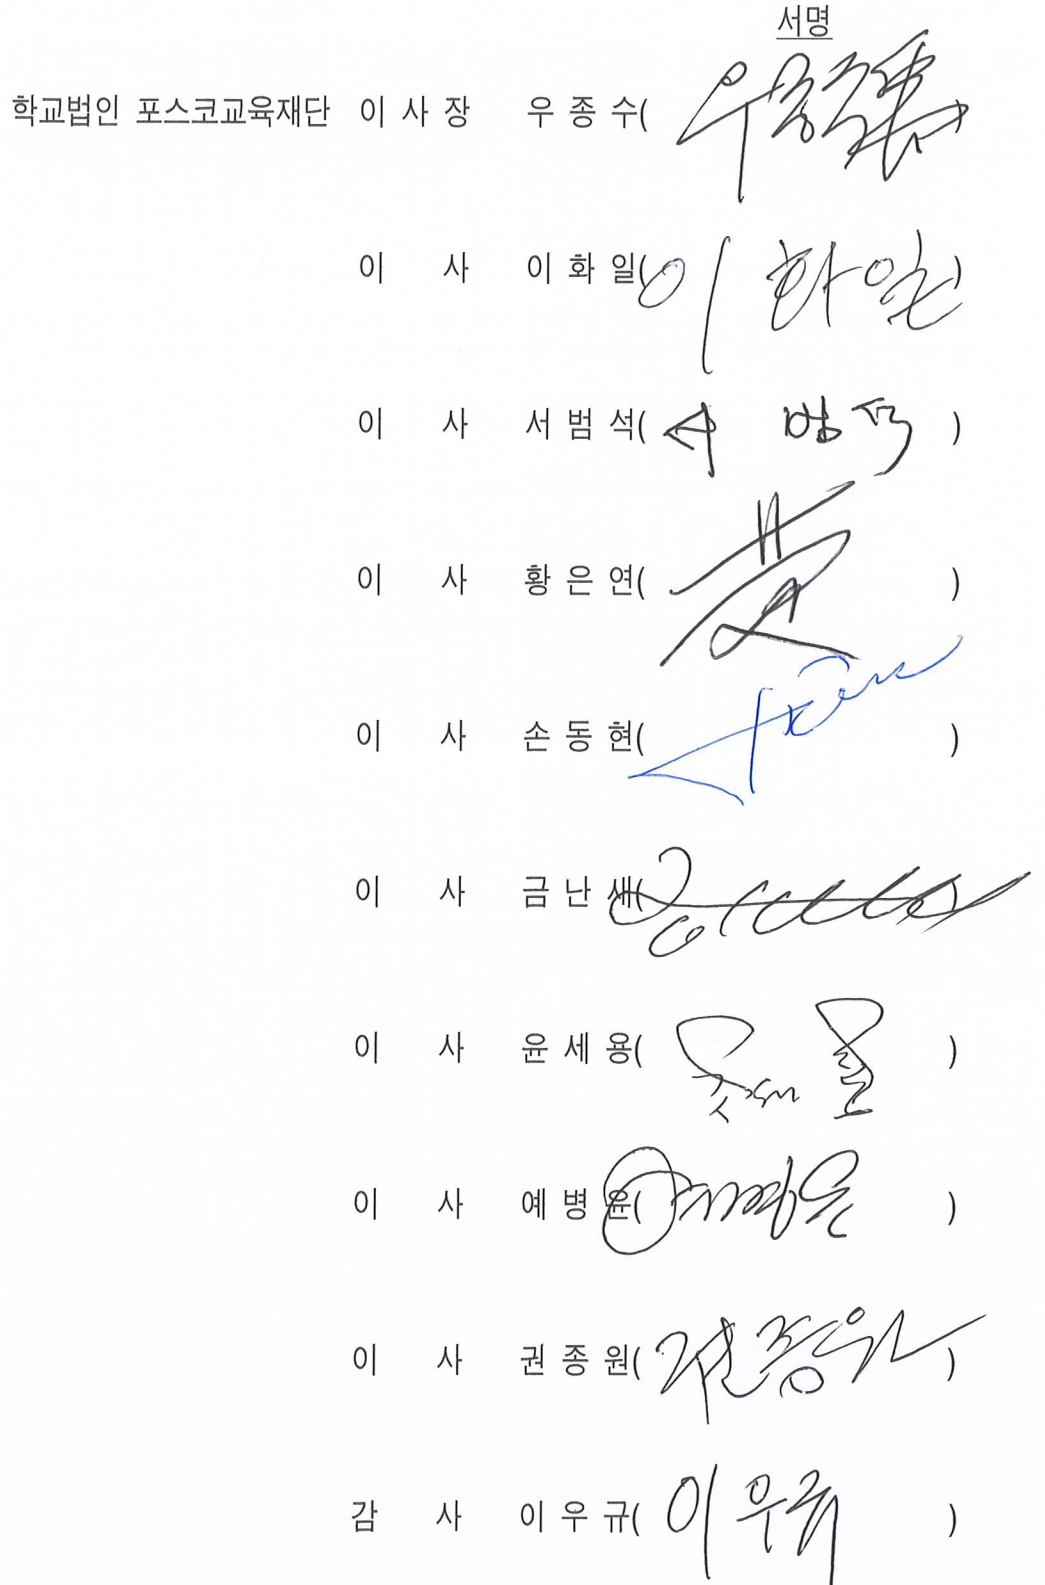 서명
학교법인 포스코교육재단 이 사 장 우 종 수( 우종수 )
이 사 이 화 일( 이 화일 )
이 사 서 범 석( 서 범석 )
이 사 황 은 연( )
이 사 손 동 현( )
이 사 금 난 새( )
이 사 윤 세 용( )
이 사 예 병 윤( )
이 사 권 종 원( 권종원 )
감 사 이 우 규( 이우규 )